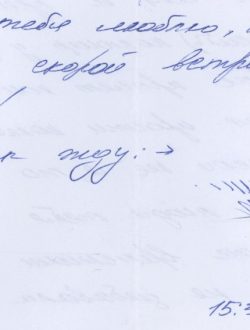 тебя люблю,
скорой встр
жду: →
15:3